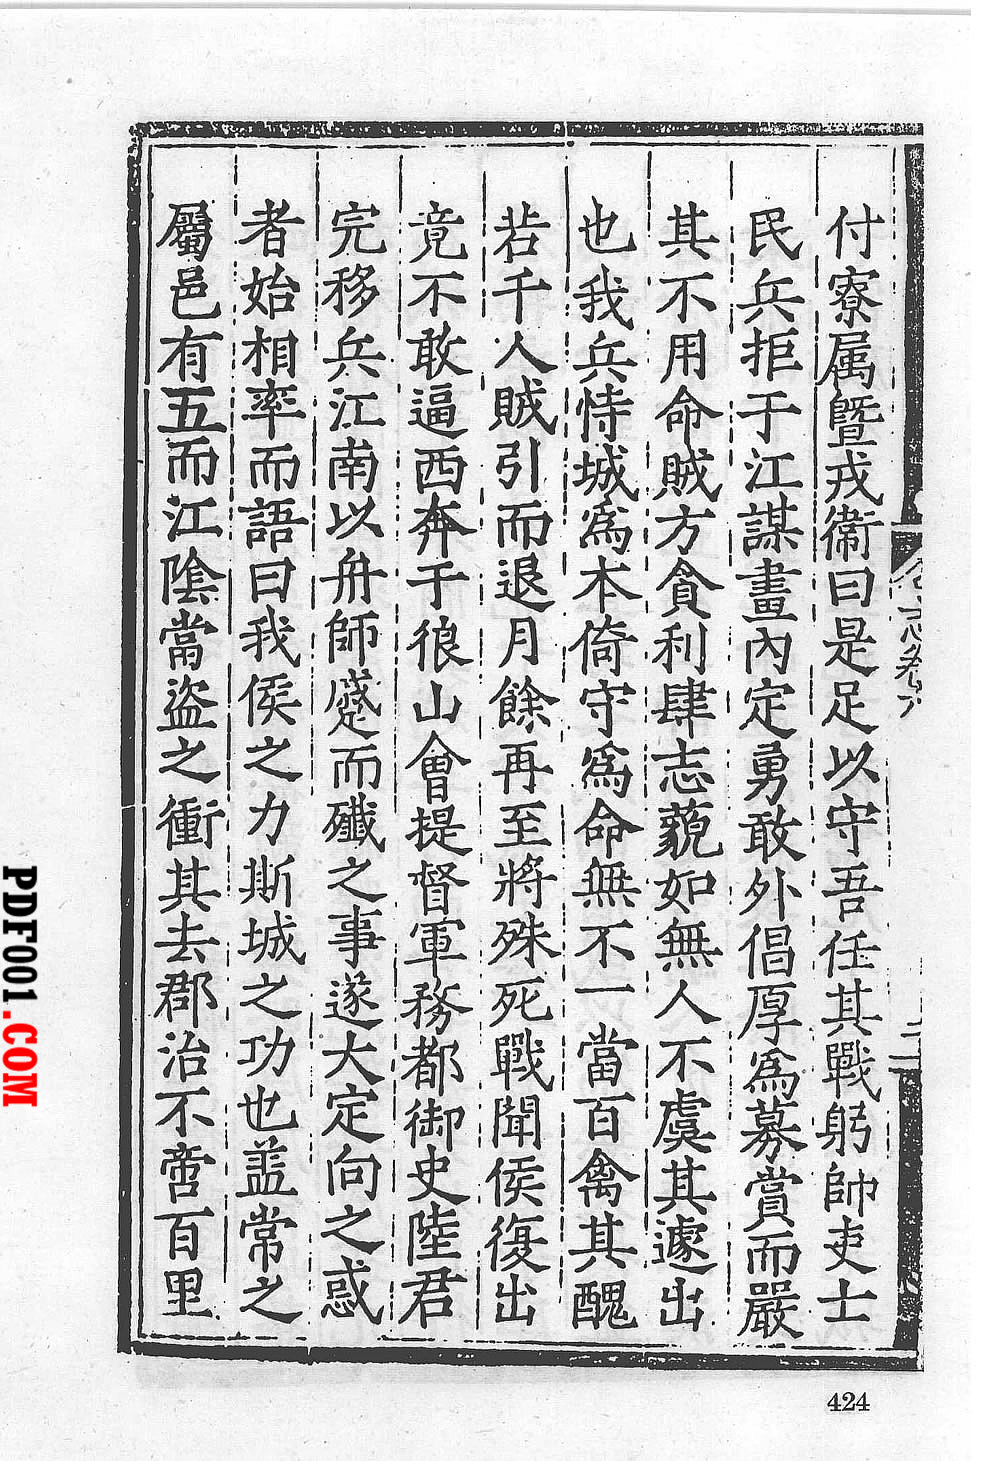 付寮属曁戎衞曰是足以守吾任其戰躬帥吏士
民兵拒于江謀畫內定勇敢外倡厚爲募賞而嚴
其不用命賊方貪利肆志藐如無人不虞其遽出
也我兵恃城爲本倚守爲命無不一當百禽其醜
若千人賊引而退月餘再至將殊死戰聞侯復出
竟不敢逼西奔于狼山會提督軍務都御史陸君
完移兵江南以舟師蹙而殲之事遂大定向之惑
者始相率而語曰我侯之力斯城之功也盖常之
屬邑有五而江陰當盜之衝其去郡治不啻百里
424
PDF001.COM